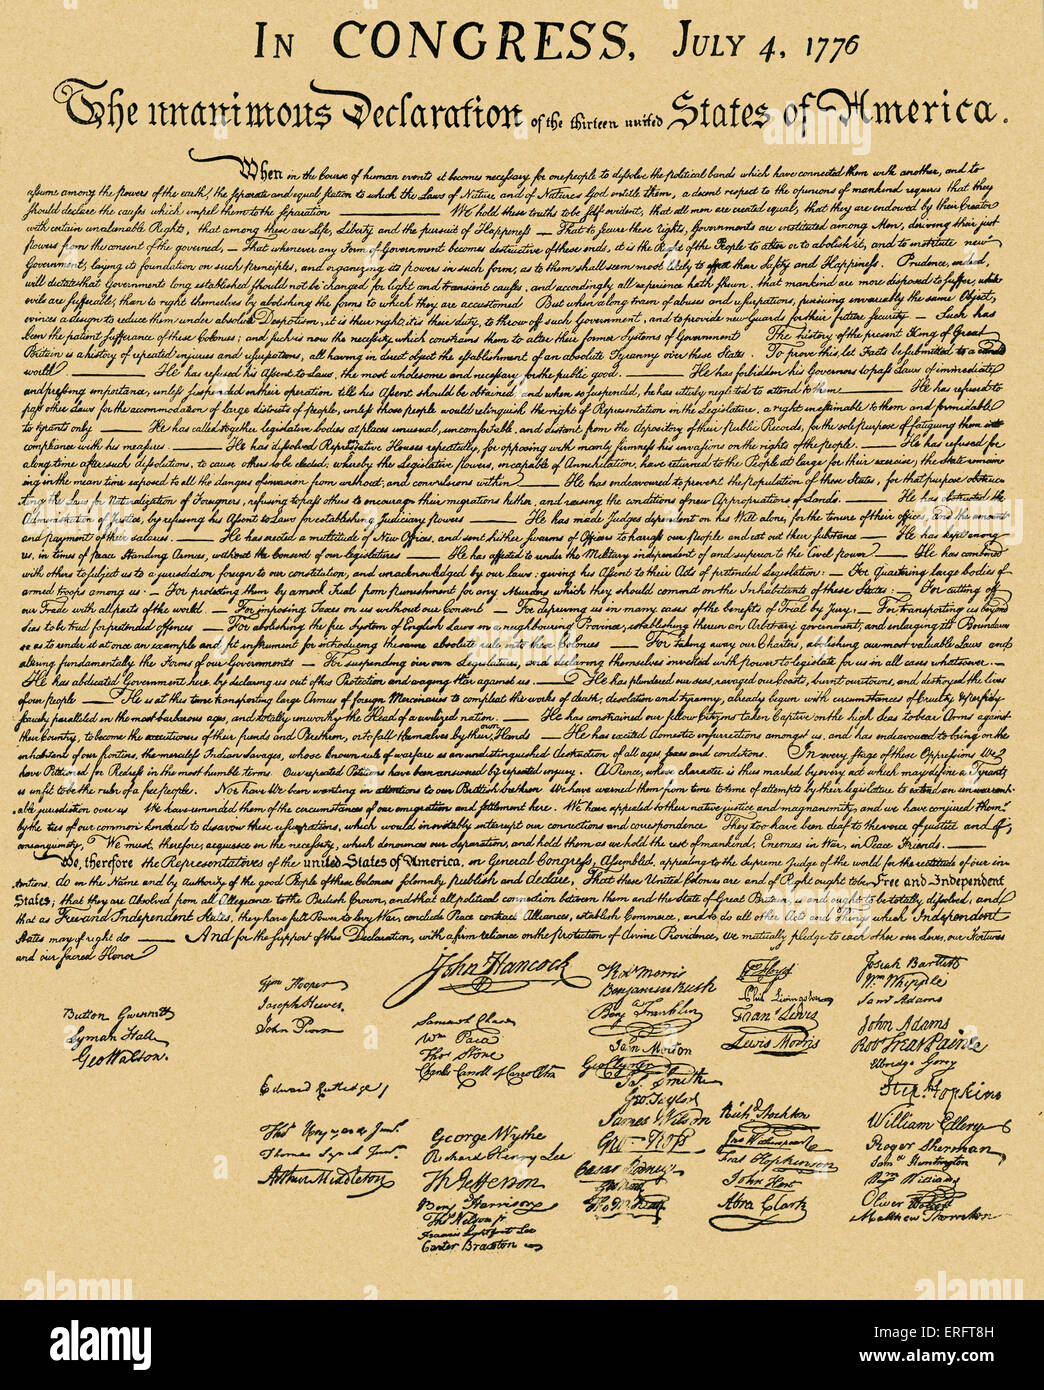 In CONGRESS, July 4, 1776
The unanimous Declaration of the thirteen united States of America.
When in the Course of human events it becomes necessary for one people to dissolve the political bands which have connected them with another, and to
assume among the powers of the earth, the separate and equal station to which the Laws of Nature and of Nature's God entitle them, a decent respect to the opinions of mankind requires that they
should declare the causes which impel them to the separation — We hold these truths to be self evident, that all men are created equal, that they are endowed by their Creator
with certain unalienable Rights, that among these are Life, Liberty and the pursuit of Happiness — That to secure these Rights, Governments are instituted among Men, deriving their just
powers from the consent of the governed, — That whenever any Form of Government becomes destructive of these ends, it is the Right of the People to alter or to abolish it, and to institute new
Government, laying its foundation on such principles, and organizing its powers in such form, as to them shall seem most likely to effect their Safety and Happiness. Prudence, indeed,
will dictate that Governments long established should not be changed for light and transient causes, and accordingly all experience hath shewn, that mankind are more disposed to suffer, while
evils are sufferable, than to right themselves by abolishing the forms to which they are accustomed But when a long train of abuses and usurpations, pursuing invariably the same Object,
evinces a design to reduce them under absolute Despotism, it is their right, it is their duty, to throw off such Government, and to provide new Guards for their future security — Such has
been the patient sufferance of these Colonies; and such is now the necessity which constrains them to alter their former Systems of Government The history of the present King of Great
Britain is a history of repeated injuries and usurpations, all having in direct object the establishment of an absolute Tyranny over these States. To prove this, let Facts be submitted to a candid
world. — He has refused his Assent to Laws, the most wholesome and necessary for the public good. — He has forbidden his Governors to pass Laws of immediate
and pressing importance, unless suspended in their operation till his Assent should be obtained, and when so suspended, he has utterly neglected to attend to them — He has refused to
pass other Laws for the accommodation of large districts of people, unless those people would relinquish the right of Representation in the Legislature, a right inestimable to them and formidable
to tyrants only — He has called together legislative bodies at places unusual, uncomfortable, and distant from the depository of their public Records, for the sole purpose of fatiguing them into
compliance with his measures. — He has dissolved Representative Houses repeatedly, for opposing with manly firmness his invasions on the rights of the people. — He has refused for
a long time after such dissolutions, to cause others to be elected; whereby the Legislative powers, incapable of Annihilation, have returned to the People at large for their exercise; the State remain
ing in the mean time exposed to all the dangers of invasion from without, and convulsions within — He has endeavoured to prevent the population of these States, for that purpose obstruc
ting the Laws for Naturalization of Foreigners, refusing to pass others to encourage their migrations hither, and raising the conditions of new Appropriations of Lands. — He has obstructed the
Administration of Justice, by refusing his Assent to Laws for establishing Judiciary powers — He has made Judges dependent on his Will alone, for the tenure of their offices, and the amount
and payment of their salaries. — He has erected a multitude of New Offices, and sent hither swarms of Officers to harass our people and eat out their substance — He has kept among
us, in times of peace Standing Armies, without the Consent of our legislatures — He has affected to render the Military independent of and superior to the Civil power — He has combined
with others to subject us to a jurisdiction foreign to our constitution, and unacknowledged by our laws; giving his Assent to their Acts of pretended Legislation: — For Quartering large bodies of
armed troops among us: — For protecting them by a mock Trial from punishment for any Murders which they should commit on the Inhabitants of these States: — For cutting off
our Trade with all parts of the world. — For imposing Taxes on us without our Consent — For depriving us in many cases of the benefits of Trial by Jury: — For transporting us beyond
Seas to be tried for pretended offences — For abolishing the free System of English Laws in a neighbouring Province, establishing therein an Arbitrary government, and enlarging its Boundaries
so as to render it at once an example and fit instrument for introducing the same absolute rule into these Colonies — For taking away our Charters, abolishing our most valuable Laws and
altering fundamentally the Forms of our Governments — For suspending our own Legislatures, and declaring themselves invested with power to legislate for us in all cases whatsoever. —
He has abdicated Government here, by declaring us out of his Protection and waging War against us. — He has plundered our seas, ravaged our Coasts, burnt our towns, and destroyed the lives
of our people — He is at this time transporting large Armies of foreign Mercenaries to compleat the works of death, desolation and tyranny, already begun with circumstances of Cruelty & perfidy
scarcely paralleled in the most barbarous ages, and totally unworthy the Head of a civilized nation. — He has constrained our fellow Citizens taken Captive on the high Seas to bear Arms against
their Country, to become the executioners of their friends and Brethren, or to fall themselves by their Hands — He has excited domestic insurrections amongst us, and has endeavoured to bring on the
inhabitants of our frontiers, the merciless Indian Savages, whose known rule of warfare is an undistinguished destruction of all ages sexes and conditions. In every stage of these Oppressions We
have Petitioned for Redress in the most humble terms. Our repeated Petitions have been answered by repeated injury. A Prince, whose character is thus marked by every act which may define a Tyrant,
is unfit to be the ruler of a free people. Nor have We been wanting in attentions to our Brittish brethren We have warned them from time to time of attempts by their legislature to extend an unwarrant-
able jurisdiction over us We have reminded them of the circumstances of our emigration and settlement here. We have appealed to their native justice and magnanimity, and we have conjured them
by the ties of our common kindred to disavow these usurpations, which would inevitably interrupt our connections and correspondence They too have been deaf to the voice of justice and of
consanguinity. We must, therefore, acquiesce in the necessity, which denounces our Separation, and hold them as we hold the rest of mankind, Enemies in War, in Peace Friends. —
We, therefore the Representatives of the united States of America, in General Congress, Assembled, appealing to the Supreme Judge of the world for the rectitude of our in-
tentions, do in the Name and by Authority of the good People of these Colonies solemnly publish and declare, That these United Colonies are and of Right ought to be Free and Independent
States; that they are Absolved from all Allegiance to the British Crown, and that all political connection between them and the State of Great Britain, is and ought to be totally dissolved; and
that as Free and Independent States, they have full Power to levy War, conclude Peace contract Alliances, establish Commerce, and to do all other Acts and Things which Independent
States may of right do — And for the support of this Declaration, with a firm reliance on the protection of divine Providence, we mutually pledge to each other our Lives, our Fortunes
and our Sacred Honor
Button Gwinnett
Lyman Hall
Geo Walton.
Wm Hooper
Joseph Hewes
John Penn
Edward Rutledge
Thos Heyward Junr.
Thomas Lynch Junr.
Arthur Middleton
John Hancock
Samuel Chase
Wm Paca
Thos Stone
Charles Carroll of Carrollton
George Wythe
Richard Henry Lee
Th Jefferson
Benj Harrison
Thos Nelson jr
Francis Lightfoot Lee
Carter Braxton
Robt Morris
Benjamin Rush
Benja Franklin
John Morton
Geo Clymer
Jas Smith
Geo Taylor
James Wilson
Geo Ross
Caesar Rodney
Geo Read
Tho M:Kean
Phil Livingston
Frans Lewis
Lewis Morris
Richd Stockton
Jno Witherspoon
Fras Hopkinson
John Hart
Abra Clark
Josiah Bartlett
Wm Whipple
Saml Adams
John Adams
Robt Treat Paine
Elbridge Gerry
Step Hopkins
William Ellery
Roger Sherman
Saml Huntington
Wm Williams
Oliver Wolcott
Matthew Thornton
alamy
Image ID: ERFT8H
www.alamy.com